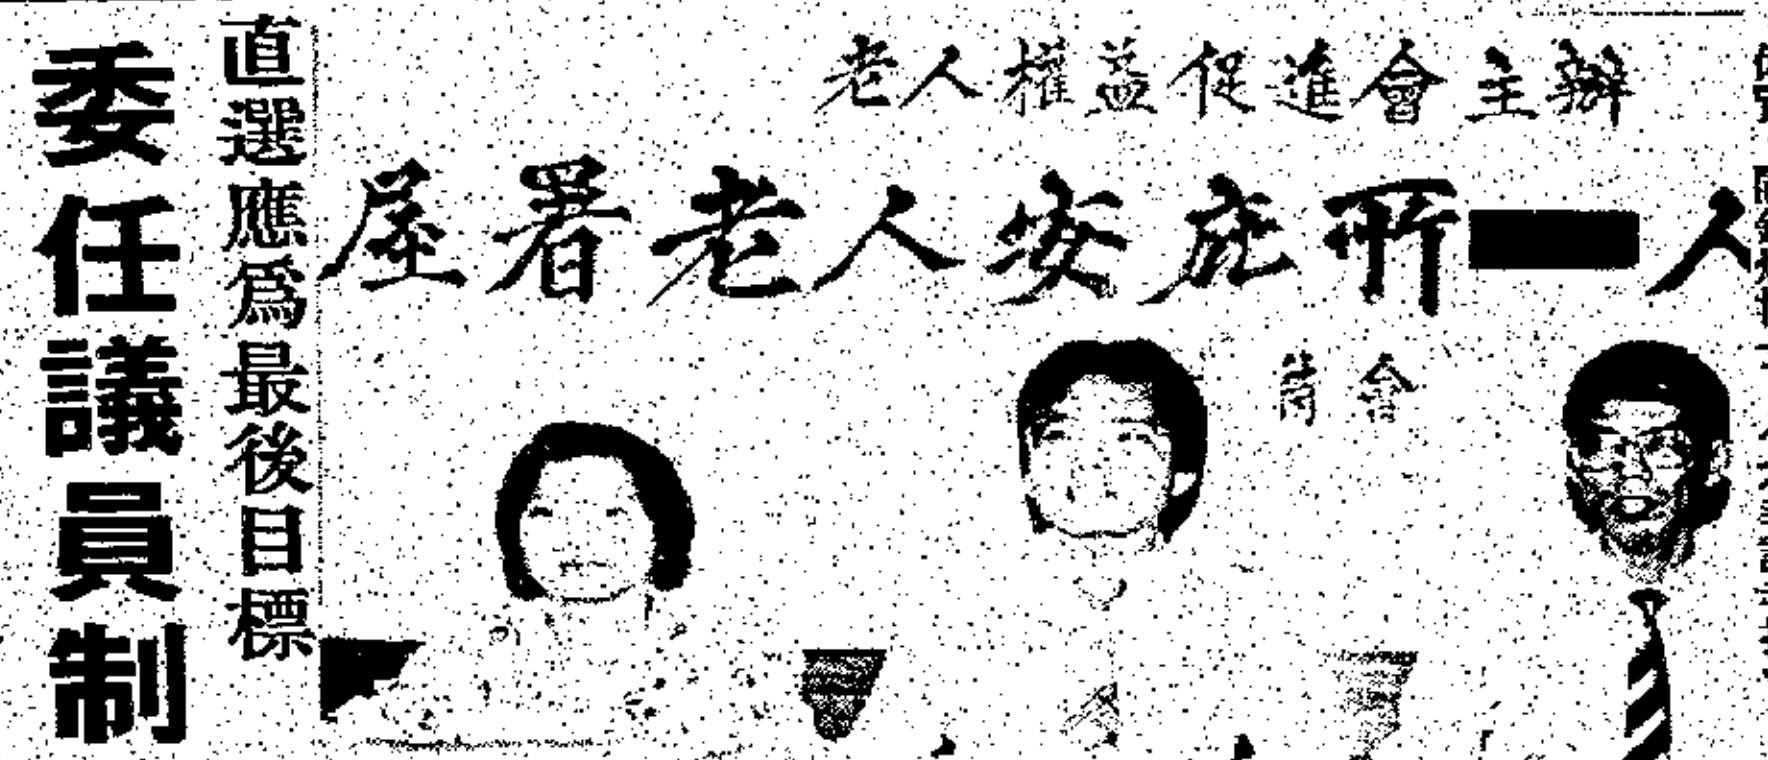 委任議員制
直選應為最後目標
老人權益促進會主辦
屋署老人安庇所一人